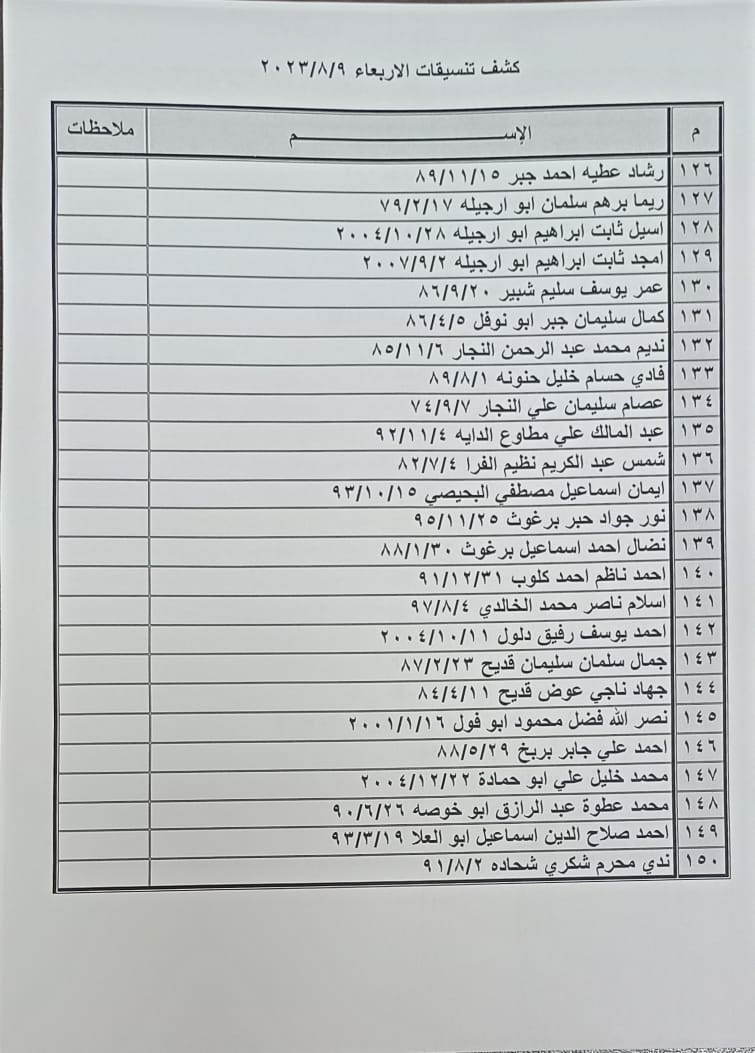 كشف تنسيقات الاربعاء ٢٠٢٣/٨/٩
م الإســـم ملاحظات
١٢٦ رشاد عطيه احمد جبر ٨٩/١١/١٥
١٢٧ ريما برهم سلمان ابو ارجيله ٧٩/٢/١٧
١٢٨ اسيل ثابت ابراهيم ابو ارجيله ٢٠٠٤/١٠/٢٨
١٢٩ امجد ثابت ابراهيم ابو ارجيله ٢٠٠٧/٩/٢
١٣٠ عمر يوسف سليم شبير ٨٦/٩/٢٠
١٣١ كمال سليمان جبر ابو نوفل ٨٦/٤/٥
١٣٢ نديم محمد عبد الرحمن النجار ٨٥/١١/٦
١٣٣ فادي حسام خليل حنونه ٨٩/٨/١
١٣٤ عصام سليمان علي النجار ٧٤/٩/٧
١٣٥ عبد المالك علي مطاوع الدايه ٩٢/١١/٤
١٣٦ شمس عبد الكريم نظيم الفرا ٨٢/٧/٤
١٣٧ ايمان اسماعيل مصطفي البحيصي ٩٣/١٠/١٥
١٣٨ نور جواد حبر برغوث ٩٥/١١/٢٥
١٣٩ نضال احمد اسماعيل برغوث ٨٨/١/٣٠
١٤٠ احمد ناظم احمد كلوب ٩١/١٢/٣١
١٤١ اسلام ناصر محمد الخالدي ٩٧/٨/٤
١٤٢ احمد يوسف رفيق دلول ٢٠٠٤/١٠/١١
١٤٣ جمال سلمان سليمان قديح ٨٧/٢/٢٣
١٤٤ جهاد ناجي عوض قديح ٨٤/٤/١١
١٤٥ نصر الله فضل محمود ابو فول ٢٠٠١/١/١٦
١٤٦ احمد علي جابر بربخ ٨٨/٥/٢٩
١٤٧ محمد خليل علي ابو حمادة ٢٠٠٤/١٢/٢٢
١٤٨ محمد عطوة عبد الرازق ابو خوصه ٩٠/٦/٢٦
١٤٩ احمد صلاح الدين اسماعيل ابو العلا ٩٣/٣/١٩
١٥٠ ندي محرم شكري شحاده ٩١/٨/٢